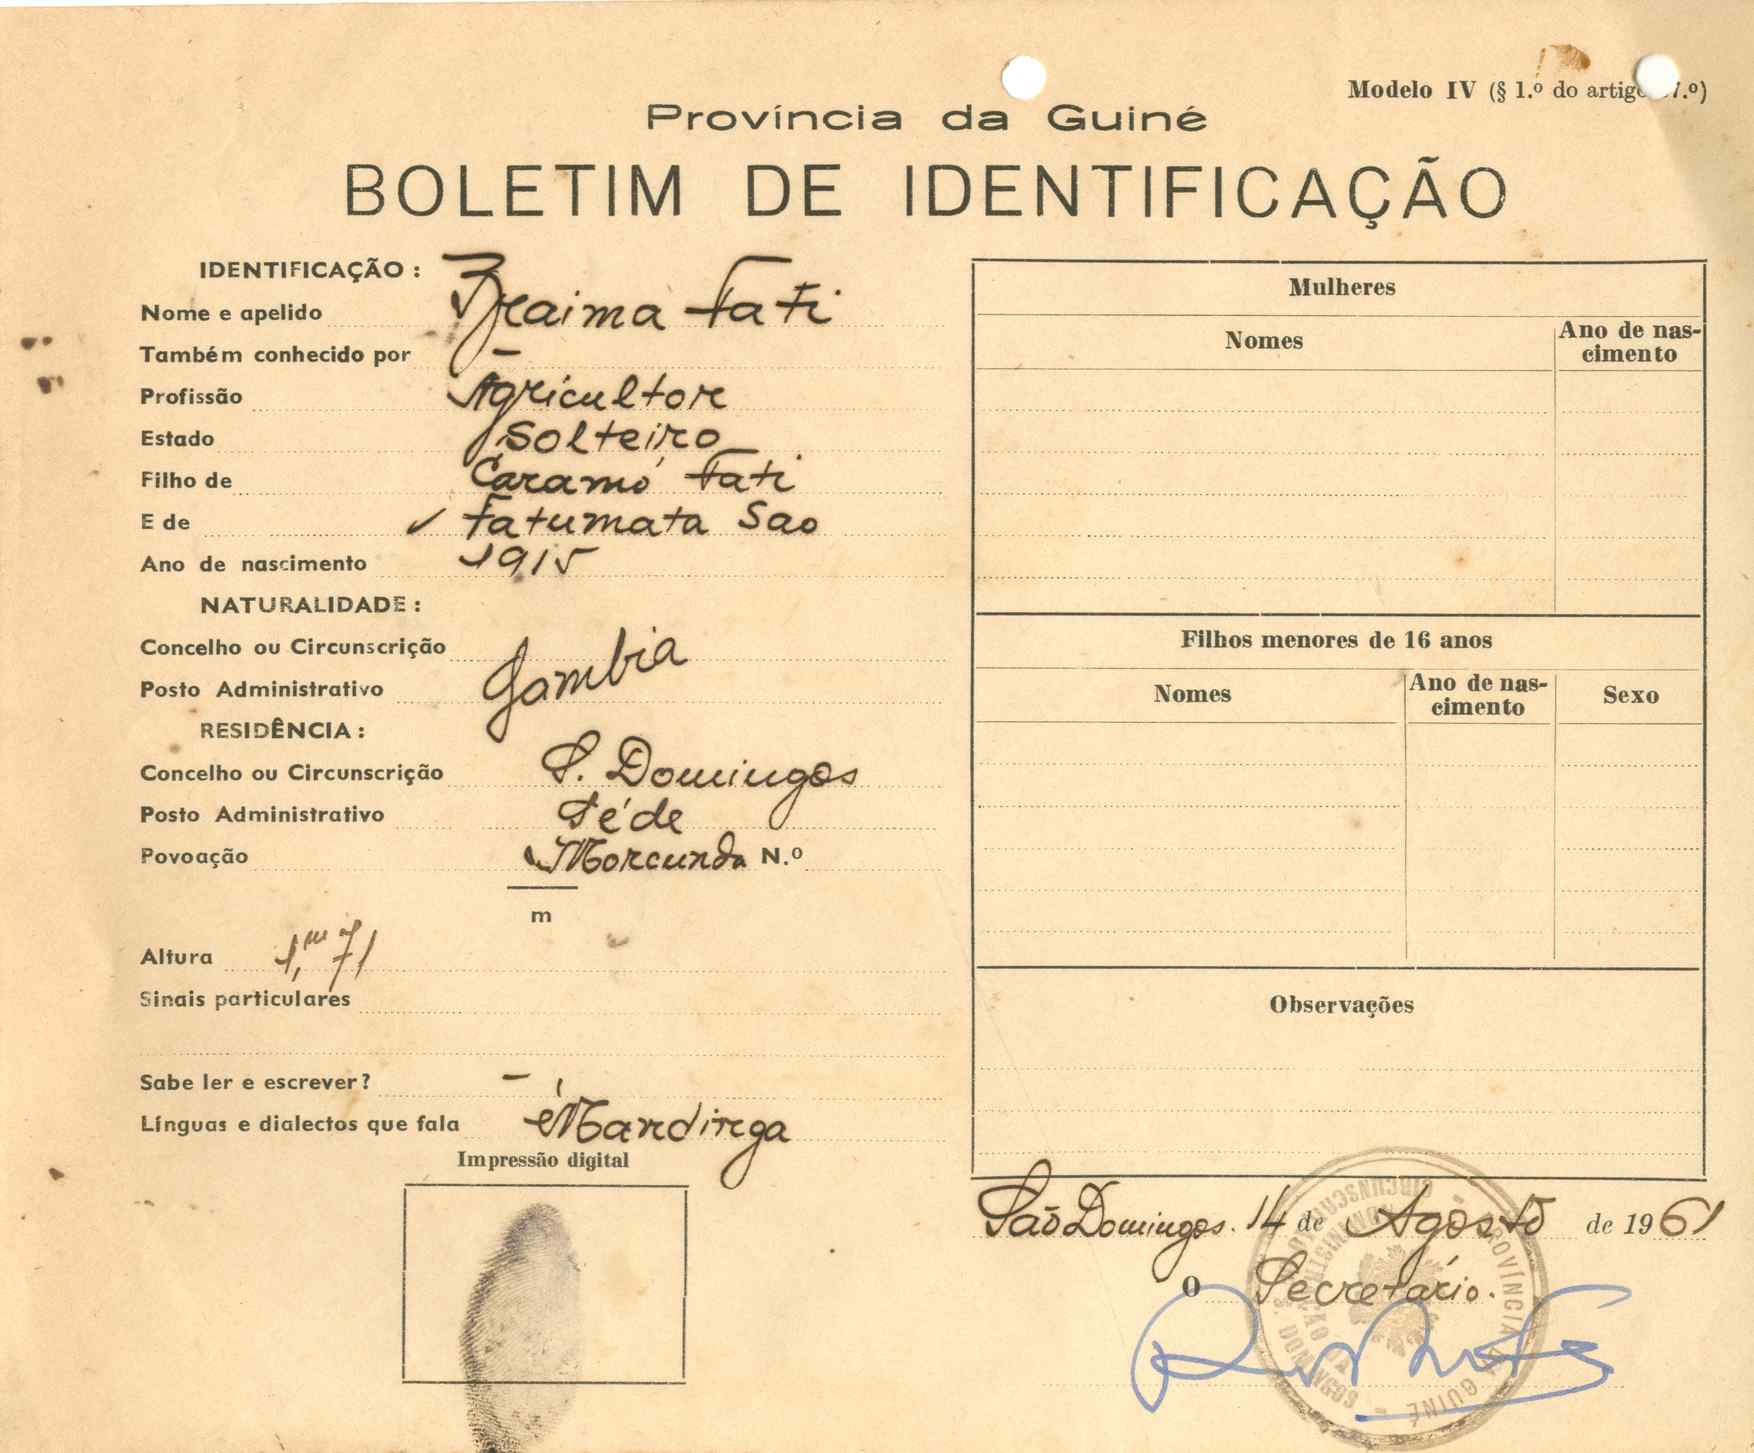 Modelo IV (§ 1.º do artigo 7.º)
Província da Guiné
BOLETIM DE IDENTIFICAÇÃO
IDENTIFICAÇÃO :
Nome e apelido Braima Fati
Também conhecido por —
Profissão Agricultor
Estado Solteiro
Filho de Caramó Fati
E de Fatumata Sao
Ano de nascimento 1915
NATURALIDADE :
Concelho ou Circunscrição Gambia
Posto Administrativo
RESIDÊNCIA :
Concelho ou Circunscrição S. Domingos
Posto Administrativo Séde
Povoação Morcunda N.º
m
Altura 1,m 71
Sinais particulares
Sabe ler e escrever? —
Línguas e dialectos que fala Mandinga
Impressão digital
Mulheres
Nomes
Ano de nas-
cimento
Filhos menores de 16 anos
Nomes
Ano de nas-
cimento
Sexo
Observações
São Domingos. 14 de Agosto de 1961
O Secretário.
PROVÍNCIA DA GUINÉ
ADMINISTRAÇÃO DA CIRCUNSCRIÇÃO
S. DOMINGOS